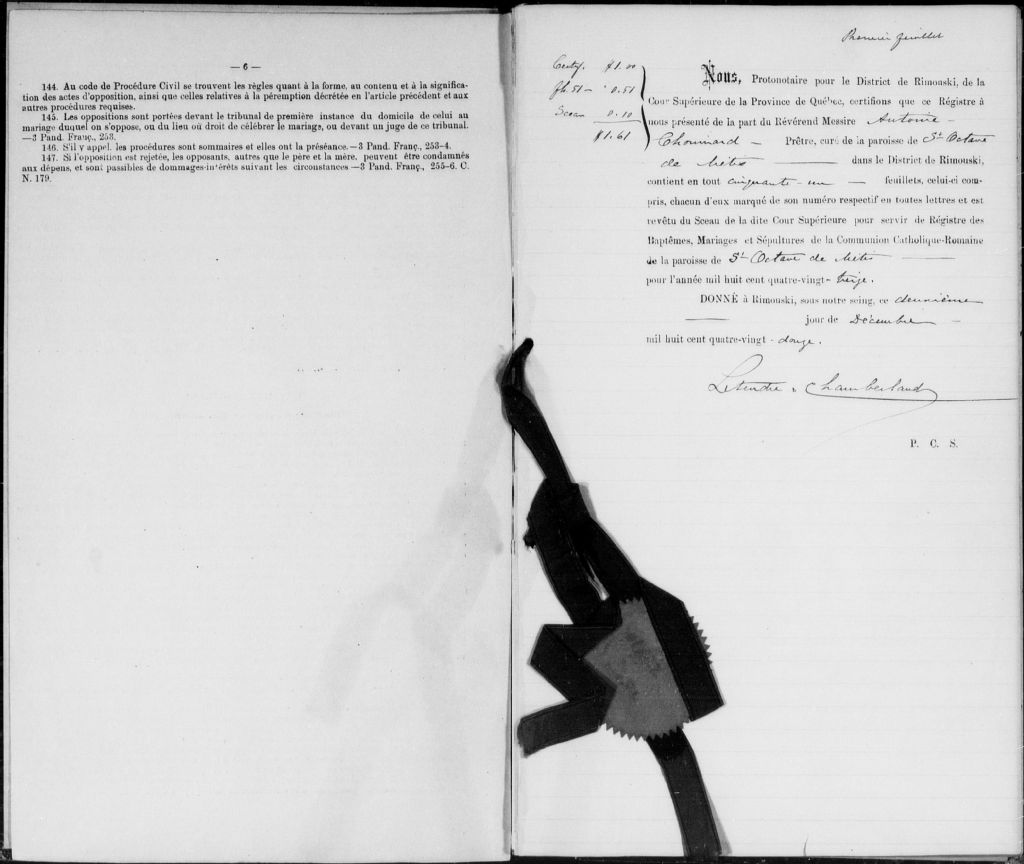 — 6 —
144. Au code de Procédure Civil se trouvent les règles quant à la forme, au contenu et à la significa-
tion des actes d'opposition, ainsi que celles relatives à la péremption décrétée en l'article précédent et aux
autres procédures requises.
145. Les oppositions sont portées devant le tribunal de première instance du domicile de celui au
mariage duquel on s'oppose, ou du lieu où droit de célébrer le mariage, ou devant un juge de ce tribunal.
—3 Pand. Franç., 253.
146. S'il y appel, les procédures sont sommaires et elles ont la préséance.—3 Pand. Franç., 253-4.
147. Si l'opposition est rejetée, les opposants, autres que le père et la mère, peuvent être condamnés
aux dépens, et sont passibles de dommages-intérêts suivant les circonstances—3 Pand. Franç., 255-6. C.
N. 179.
Premier feuillet
Certif. $1.00
fh. 51 — 0.51
Sceau 0.10
$1.61
Nous, Protonotaire pour le District de Rimouski, de la
Cour Supérieure de la Province de Québec, certifions que ce Régistre à
nous présenté de la part du Révérend Messire Antoine —
Chouinard — Prêtre, curé de la paroisse de St Octave
de Métis — dans le District de Rimouski,
contient en tout cinquante-un — feuillets, celui-ci com-
pris, chacun d'eux marqué de son numéro respectif en toutes lettres et est
revêtu du Sceau de la dite Cour Supérieure pour servir de Régistre des
Baptêmes, Mariages et Sépultures de la Communion Catholique-Romaine
de la paroisse de St Octave de Métis —
pour l'année mil huit cent quatre-vingt-treize.
DONNÉ à Rimouski, sous notre seing, ce deuxième
— jour de Décembre —
mil huit cent quatre-vingt-douze.
Letendre & Chamberland
P. C. S.